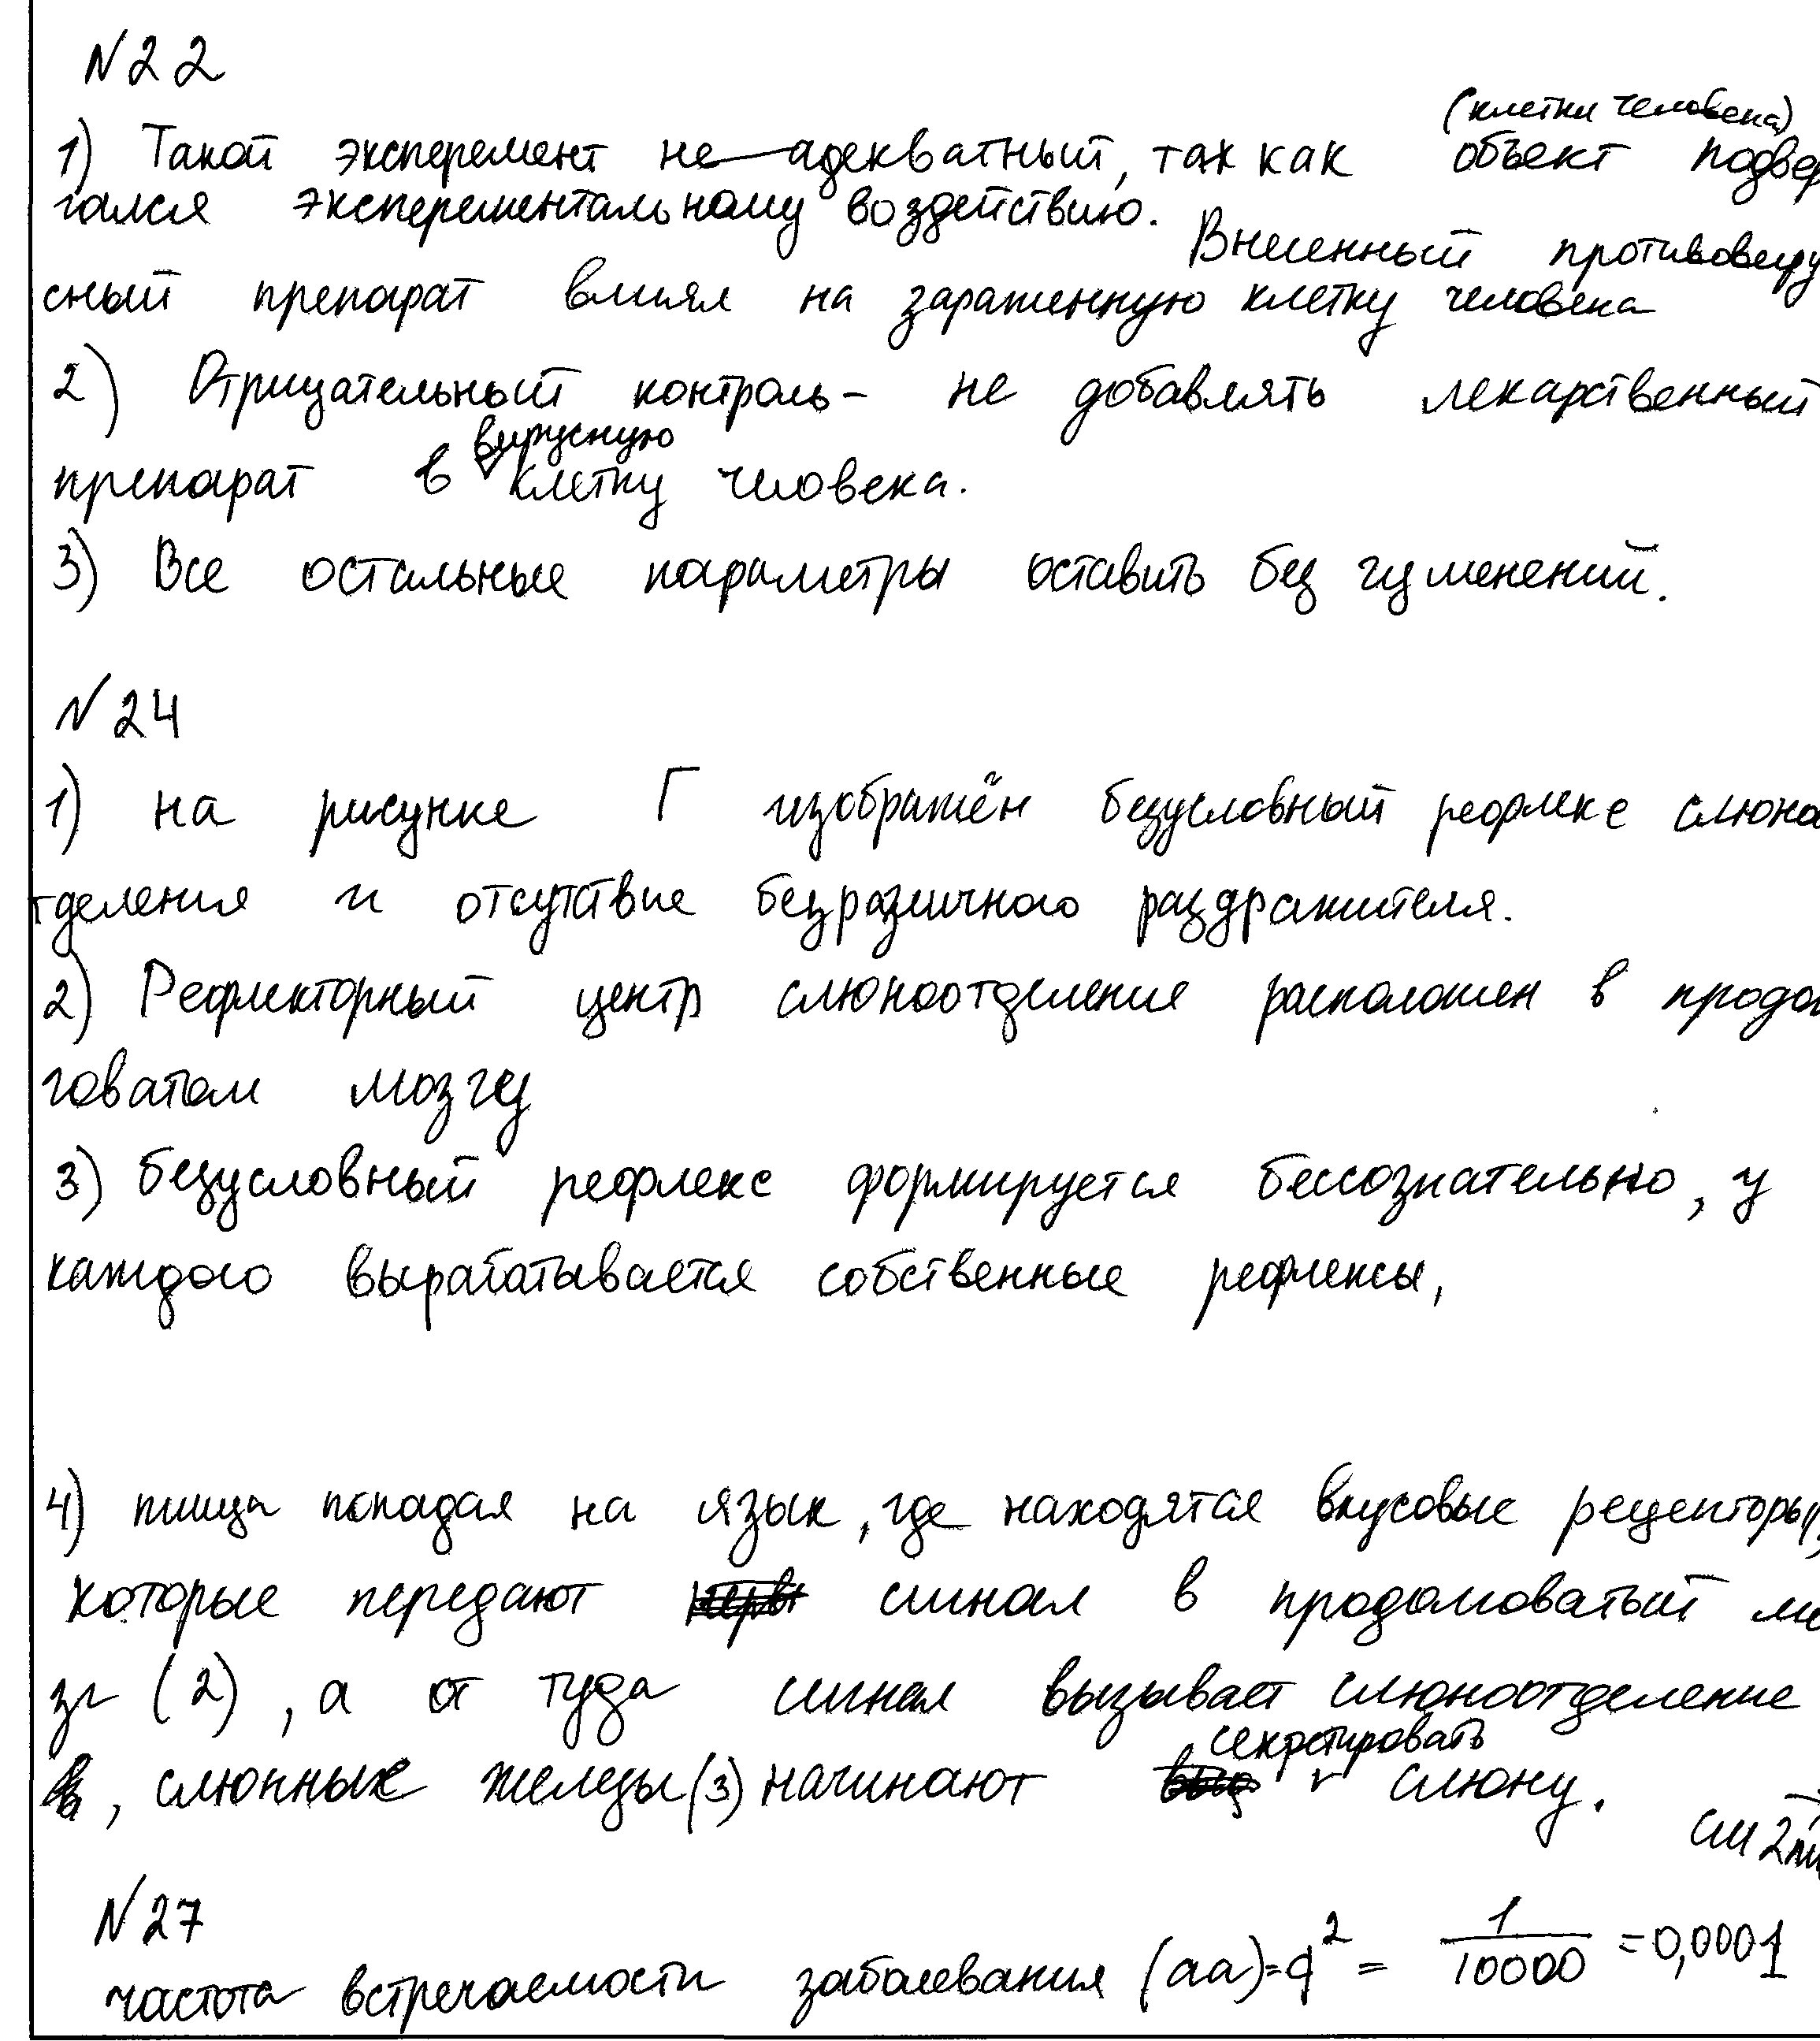 N22
(клетки человека)
1) Такой эксперемент не адекватный, так как объект подвер
гался эксперементальному воздействию.
Внесенный противовиру
сный препарат влиял на зараженную клетку человека
2) Отрицательный контроль - не добавлять лекарственный
вирусную
препарат в клетку человека.
3) Все остальные параметры оставить без изменений.
N24
1) на рисунке Г изображён безусловный рефлекс слюно
тделения и отсутствие безразличного раздражителя.
2) Рефлекторный центр слюноотделение расположен в продол
говатом мозгу
3) безусловный рефлекс формируется бессознательно, у
каждого вырабатывается собственные рефлексы,
4) пища попадая на язык, где находятся вкусовые рецепторы,
которые передают сигнал в продолговатый мо
зг (2), а от туда сигнал вызывает слюноотделение
секретировать
, слюнные железы (3) начинают слюну.
см 2
N27
частота встречаемости заболевания (aa)=q² = 1/10000 = 0,0001